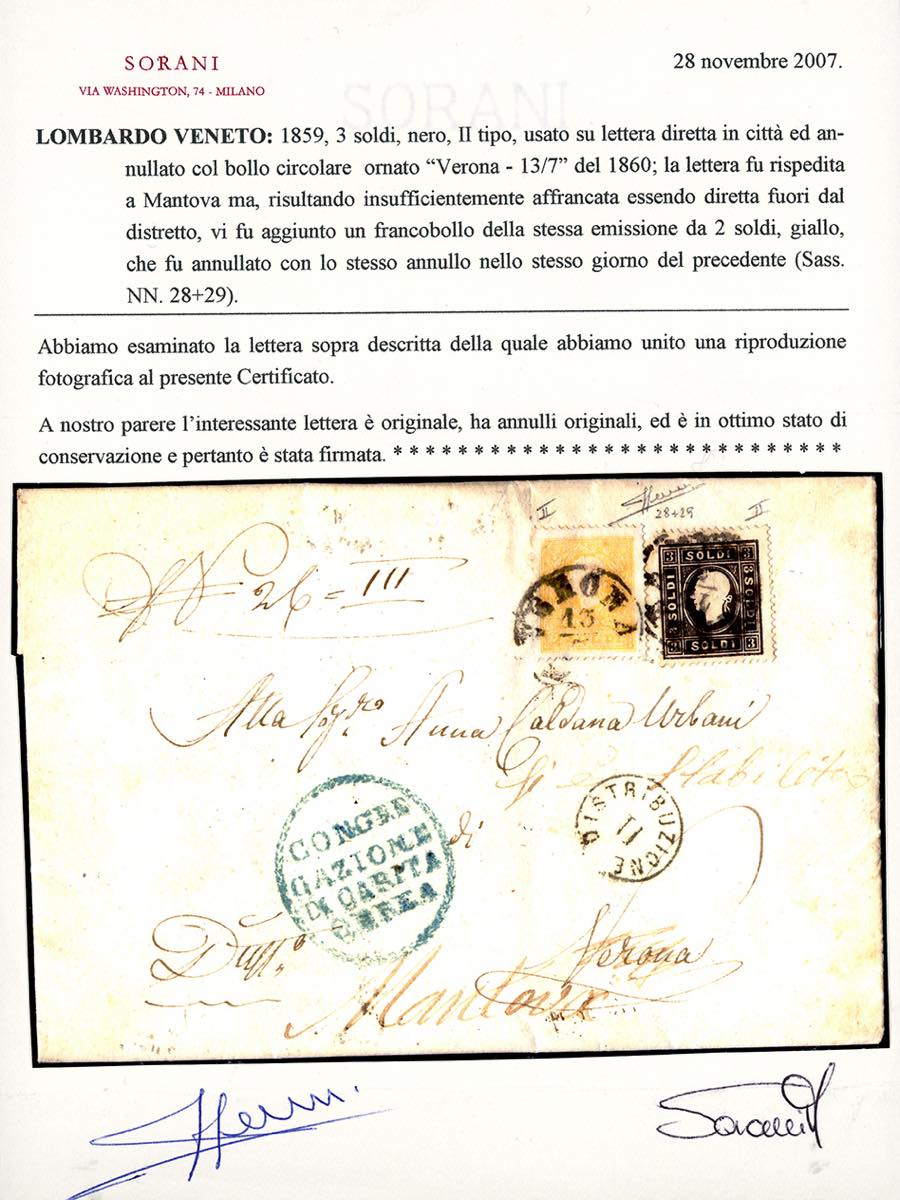 SORANI
VIA WASHINGTON, 74 - MILANO
28 novembre 2007.
SORANI
LOMBARDO VENETO: 1859, 3 soldi, nero, II tipo, usato su lettera diretta in città ed an-
nullato col bollo circolare ornato “Verona - 13/7” del 1860; la lettera fu rispedita
a Mantova ma, risultando insufficientemente affrancata essendo diretta fuori dal
distretto, vi fu aggiunto un francobollo della stessa emissione da 2 soldi, giallo,
che fu annullato con lo stesso annullo nello stesso giorno del precedente (Sass.
NN. 28+29).
Abbiamo esaminato la lettera sopra descritta della quale abbiamo unito una riproduzione
fotografica al presente Certificato.
A nostro parere l’interessante lettera è originale, ha annulli originali, ed è in ottimo stato di
conservazione e pertanto è stata firmata. * * * * * * * * * * * * * * * * * * * * * * * * * * * *
II
28+29
II
26 = III
VERONA
13
3 SOLDI 3
SOLDI
SOLDI
3 SOLDI 3
Alla Sigra Anna Caldana Urbani
CONGRE
GAZIONE
DI CARITA
EBREA
di
DISTRIBUZIONE
II
Verona
Mantova